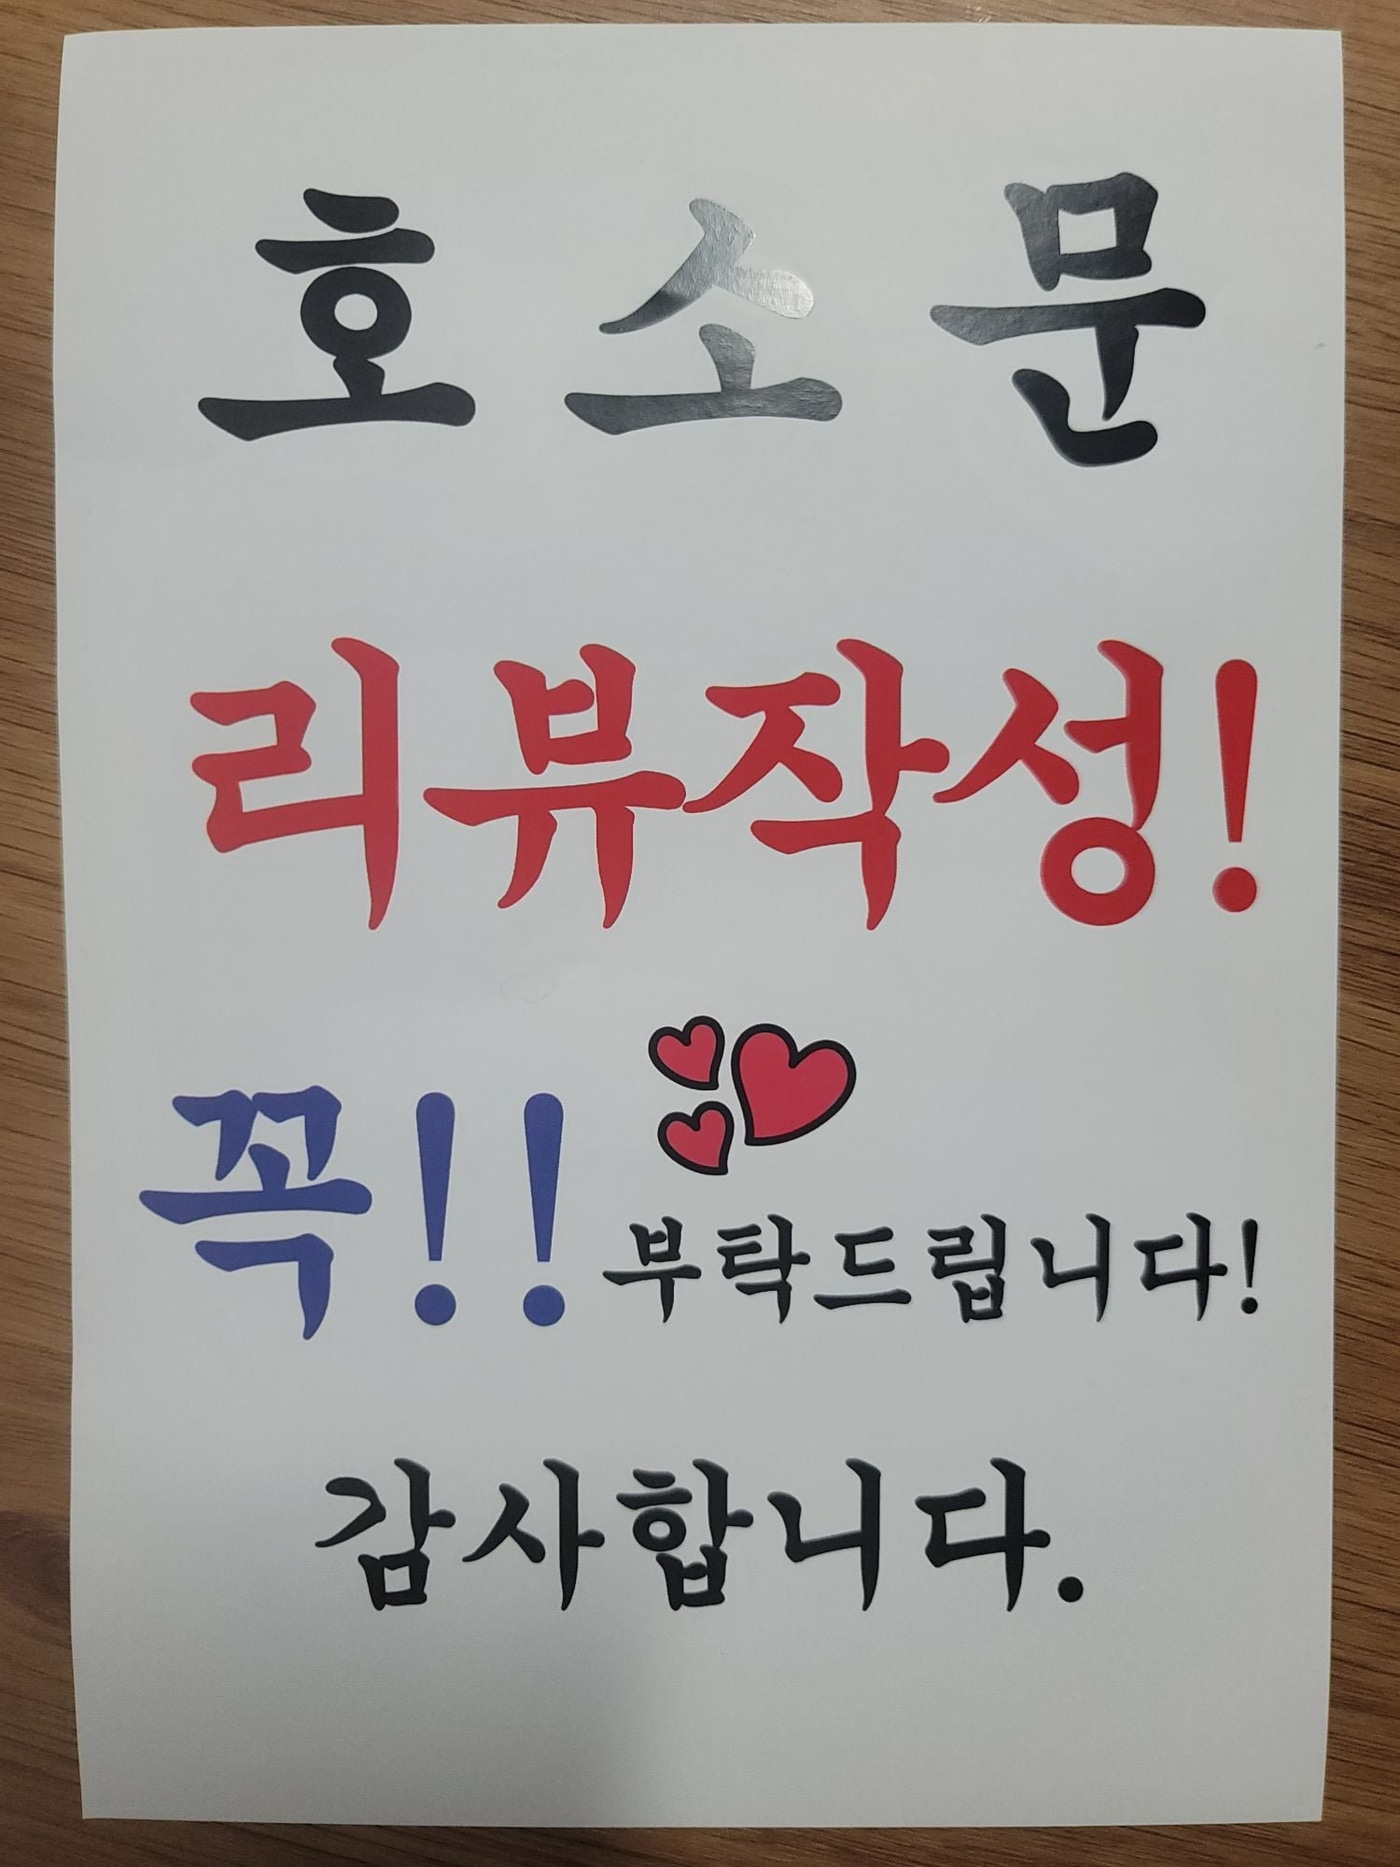 호 소 문
리뷰작성!
꼭!! 부탁드립니다!
감사합니다.